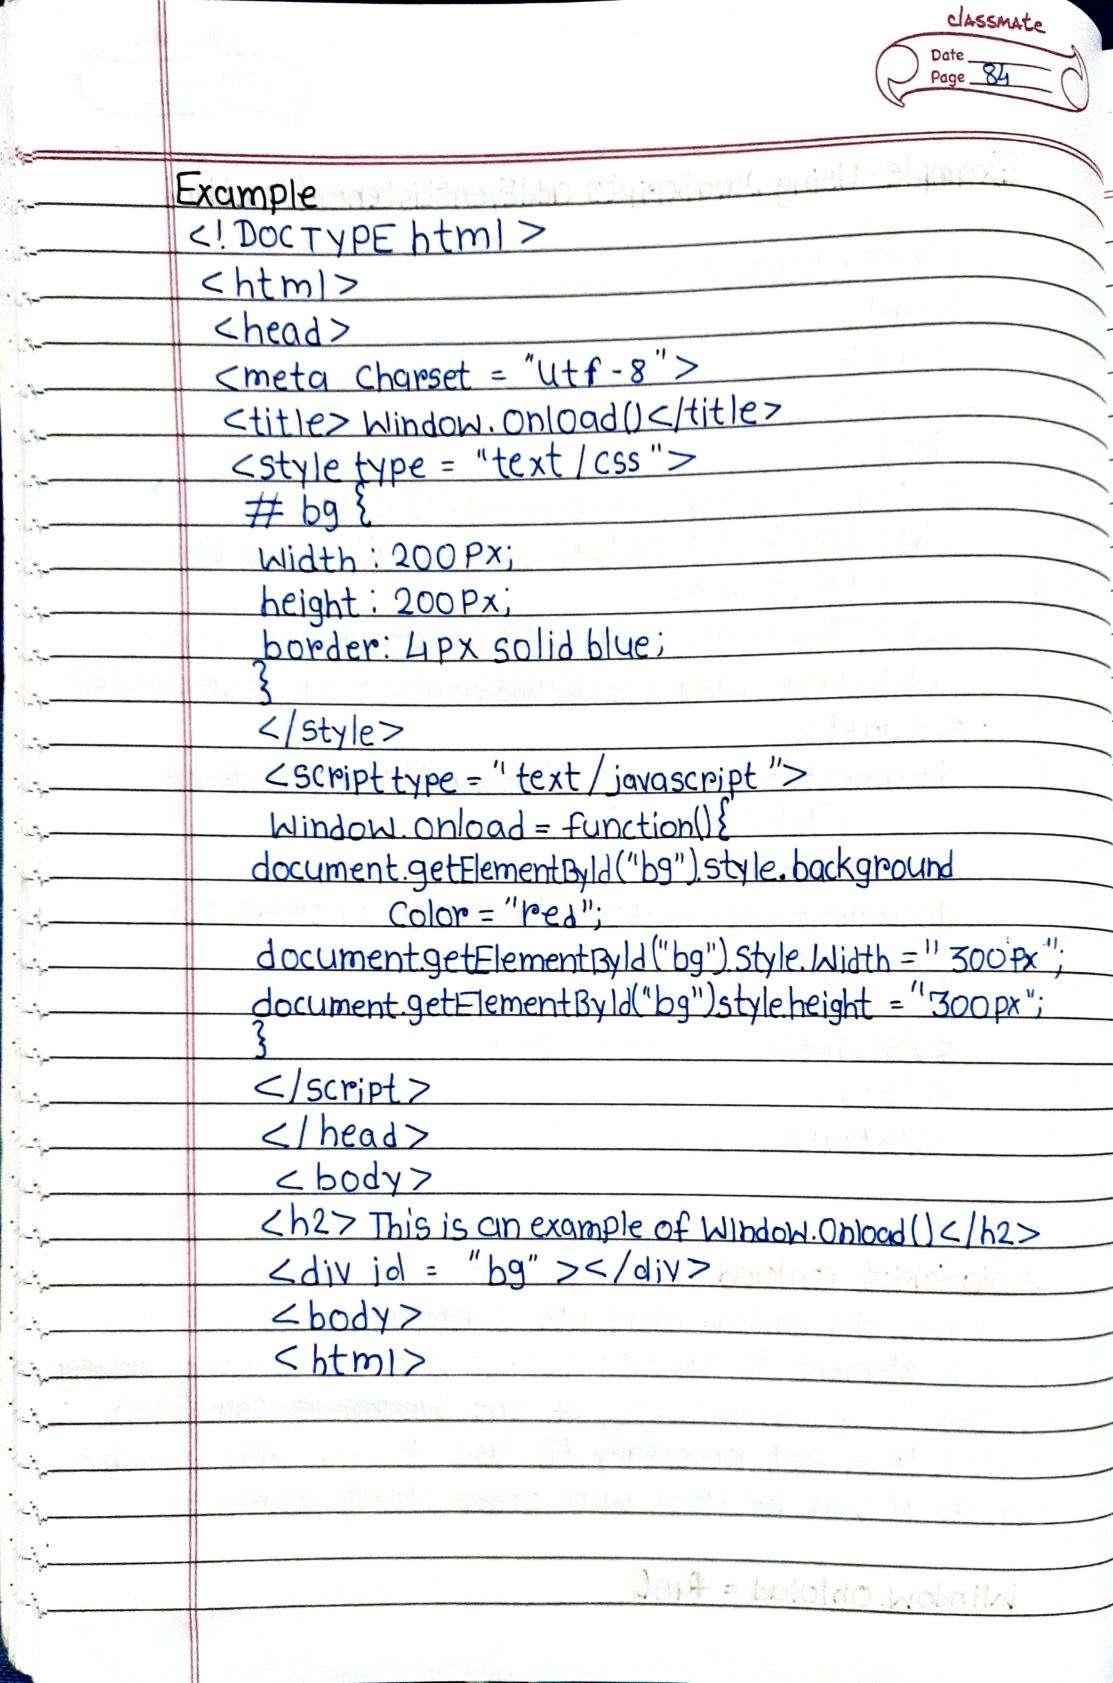 classmate
Date
Page 84
Example
<!DOCTYPE html>
<html>
<head>
<meta charset = "utf-8">
<title> Window.onload()</title>
<style type = "text/css">
# bg {
Width : 200Px;
height : 200Px;
border: 4px solid blue;
}
</style>
<script type = "text/javascript">
Window.onload = function(){
document.getElementById("bg").style.background
Color = "red";
document.getElementById("bg").Style.Width = "300px";
document.getElementById("bg")style.height = "300px";
}
</script>
</head>
<body>
<h2> This is an example of Window.Onload()</h2>
<div id = "bg" ></div>
<body>
<html>